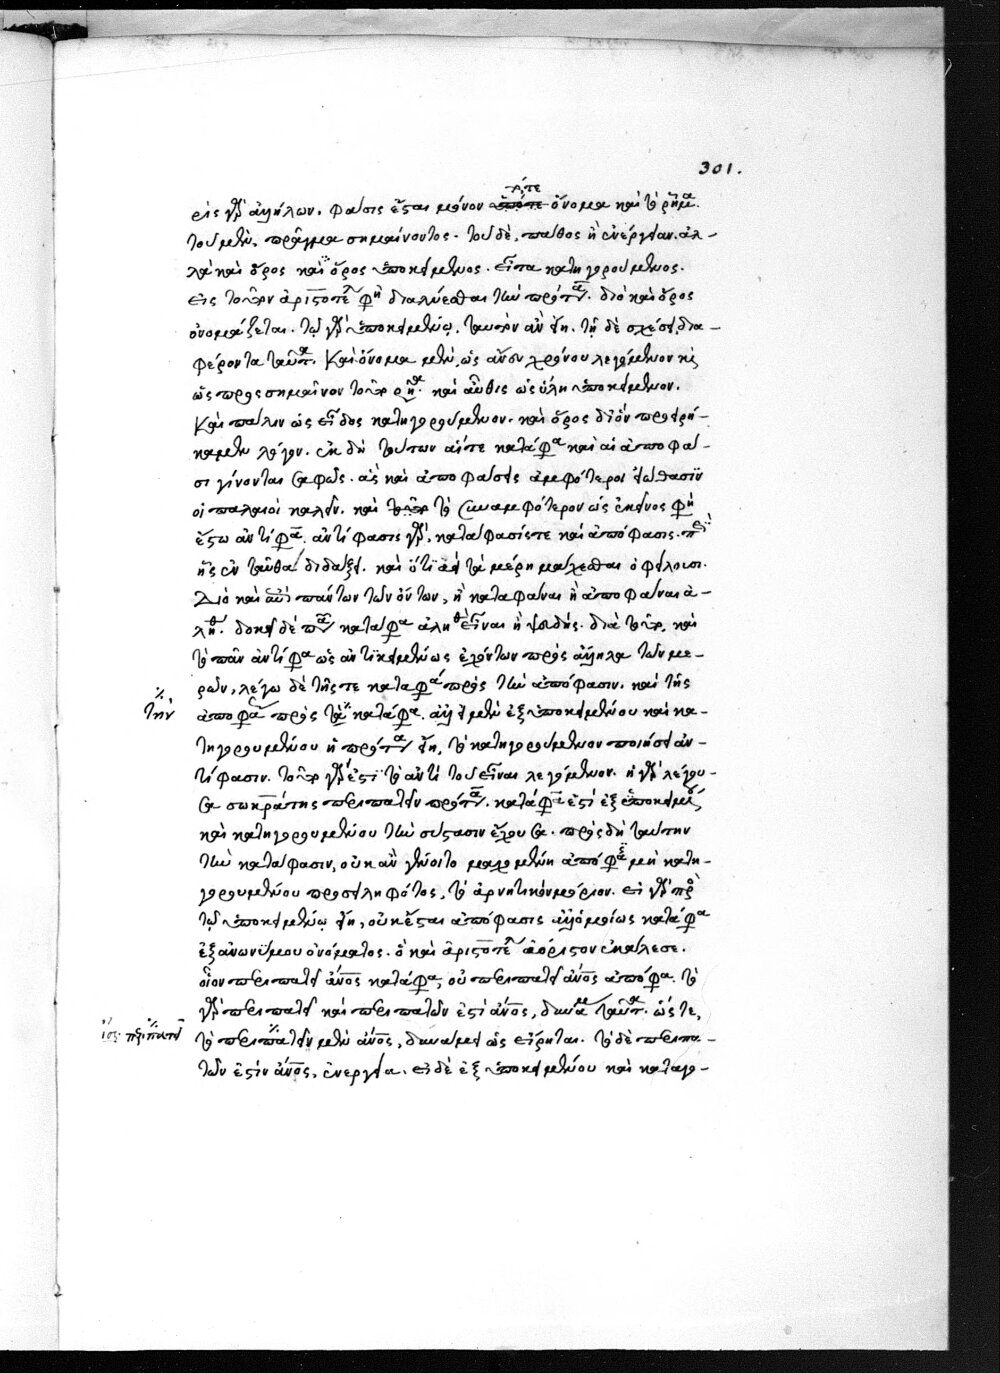 301.
ρὶς γὰρ ἀλλήλων. φάσις ἔσται μόνον ἅτε ὄνομα καὶ τὸ ῥῆμα.
τοῦ μὲν, πρᾶγμα σημαίνοντος. τοῦ δὲ, πάθος ἢ ἐνέργειαν. ἀλ-
λὰ καὶ ὅρος καὶ ὅρος ὑποκείμενος. εἶτα κατηγορούμενος.
εἰς τοῦτον ἀριστοτέλης φησὶ διαλύεσθαι τὴν πρότασιν. διὸ καὶ ὅρος
ὀνομάζεται. τῷ γὰρ ὑποκειμένῳ, ταυτὸν ἂν εἴη. τῇ δὲ σχέσει, δια-
φέροντα ταῦτα. καὶ ὄνομα μὲν, ὡς ἄνευ χρόνου λεγόμενον
ὡς προσσημαῖνον τοῦτον ῥῆμα. καὶ αὖθις ὡς ὕλη ὑποκείμενον.
καὶ πάλιν ὡς εἶδος κατηγορούμενον. καὶ ὅρος δι' ὃν προειρή-
καμεν λόγον. ἐκ δὴ τούτων αἵτε καταφάσεις καὶ αἱ ἀποφά-
σεις γίνονται σαφῶς. ἃς καὶ ἀποφάσεις ἀμφότεροι εἰώθασιν
οἱ παλαιοὶ καλεῖν. καὶ τὸ συναμφότερον ὡς ἐκεῖνος φησὶ
ἔστω ἀντίφασις. ἀντίφασις γὰρ, κατάφασίς τε καὶ ἀπόφασις.
ἧς ἐνταῦθα διδάξει. καὶ ὅτι ἀεὶ τὰ μέρη μάχεσθαι ὀφείλουσι.
Διὸ καὶ ἀντὶ πάντων τῶν ὄντων, ἢ καταφάναι ἢ ἀποφάναι ἀ-
ληθὲς. δοκεῖ δὲ πᾶσα κατάφασις ἀληθὴς εἶναι ἢ ψευδής. διὰ τοῦτο, καὶ
τὸ πᾶν ἀντίφασις ὡς ἀντικειμένως ἐχόντων πρὸς ἄλληλα τῶν με-
ρῶν, λέγω δὲ τῆς τε καταφάσεως πρὸς τὴν ἀπόφασιν. καὶ τῆς
τὴν
ἀποφάσεως πρὸς τὴν κατάφασιν. ἀλλ' εἰ μὲν ἐξ ὑποκειμένου καὶ κα-
τηγορουμένου ἡ πρότασις εἴη, τὸ κατηγορούμενον ποιήσει ἀν-
τίφασιν. τοῦτο γάρ ἐστι τὸ ἀντὶ τοῦ εἶναι λεγόμενον. ἡ γὰρ λέγου-
σα σωκράτης περιπατεῖν πρότασις. κατάφασις ἐστὶ ἐξ ὑποκειμένου
καὶ κατηγορουμένου τὴν σύστασιν ἔχουσα. πρὸς δὴ ταύτην
τὴν κατάφασιν, οὐκ ἂν γένοιτο μαχομένη ἀπόφασις μὴ κατη-
γορουμένου προσειληφότος, τὸ ἀρνητικὸν μόριον. εἰ γὰρ πρὸς
τῷ ὑποκειμένῳ εἴη, οὐκ ἔσται ἀπόφασις ἀλλ' ὁμοίως κατάφασις
ἐξ ἀνωνύμου ὀνόματος. ὃ καὶ ἀριστοτέλης ἀόριστον ἐκάλεσε.
οἷον περιπατεῖ ἄνθρωπος κατάφασις, οὐ περιπατεῖ ἄνθρωπος ἀπόφασις. τὸ
γὰρ περιπατεῖ καὶ περιπατῶν ἐστὶ ἄνθρωπος, δυνάμει ταῦτα. ὥστε,
ἴσ. περιπατεῖ
τὸ περιπατεῖν μὲν ἄνθρωπος, δυνάμει ὡς εἴρηται. τὸ δὲ περιπα-
τῶν ἐστὶν ἄνθρωπος, ἐνεργείᾳ. εἰ δὲ ἐξ ὑποκειμένου καὶ κατηγο-